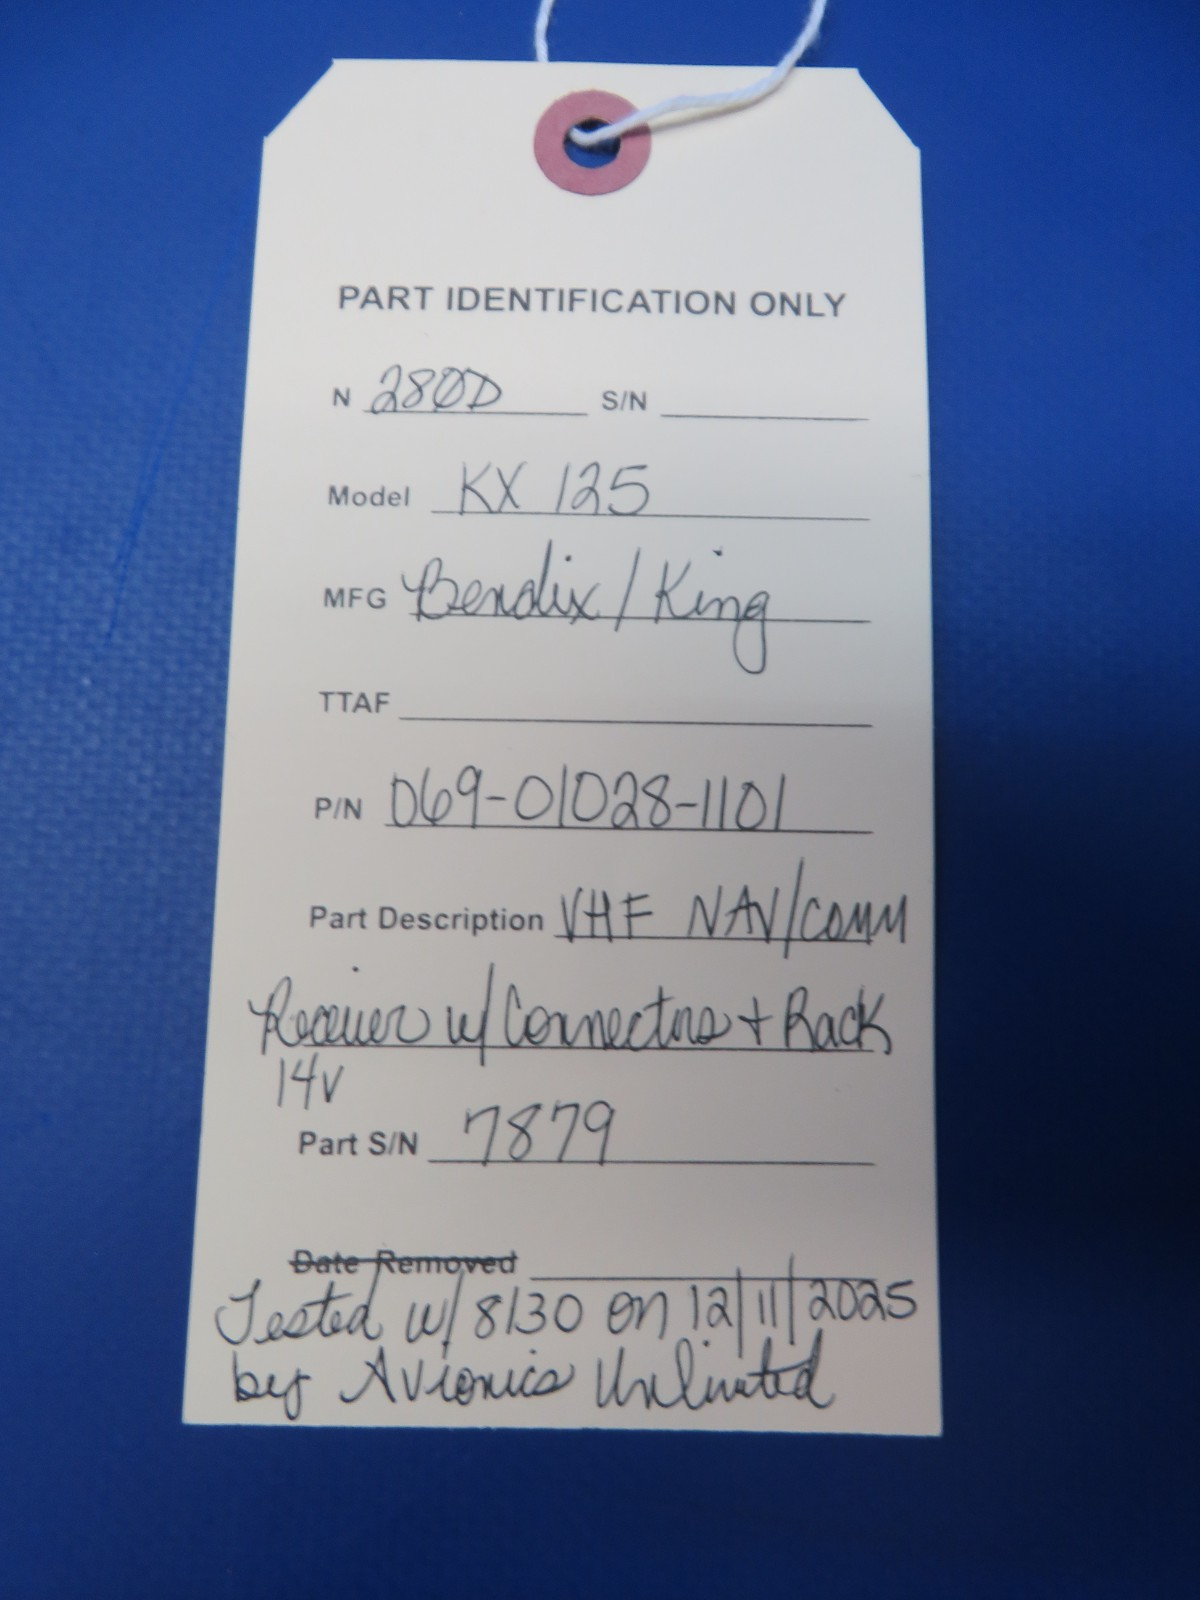 PART IDENTIFICATION ONLY
N 280D S/N
Model KX 125
MFG Bendix/King
TTAF
P/N 069-01028-1101
Part Description VHF NAV/COMM
Receiver w/ Connectors + Rack
14V
Part S/N 7879
Date Removed
Tested w/ 8130 on 12/11/2025
by Avionics Unlimited